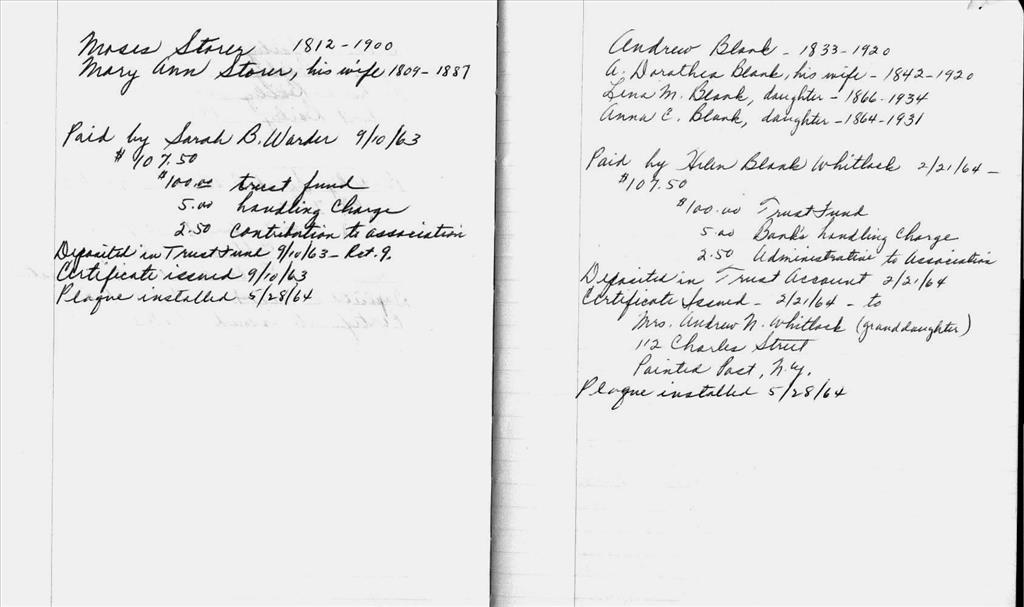 Moses Storer 1812-1900
Mary Ann Storer, his wife 1809-1887
Paid by Sarah B. Warder 9/10/63
$107.50
$100.00 trust fund
5.00 handling charge
2.50 contribution to association
Deposited in Trust Fund 9/10/63 - Rct. 9.
Certificate issued 9/10/63
Plaque installed 5/28/64
Andrew Blank - 1833-1920
A. Dorathea Blank, his wife - 1842-1920
Lena M. Blank, daughter - 1866-1934
Anna C. Blank, daughter - 1864-1931
Paid by Helen Blank Whitlock 2/21/64 -
$107.50
$100.00 Trust Fund
5.00 Bank's handling charge
2.50 Administrative to Association
Deposited in Trust Account 2/21/64
Certificate Issued - 2/21/64 - to
Mrs. Andrew N. Whitlock (granddaughter)
112 Charles Street
Painted Post, N.Y.
Plaque installed 5/28/64